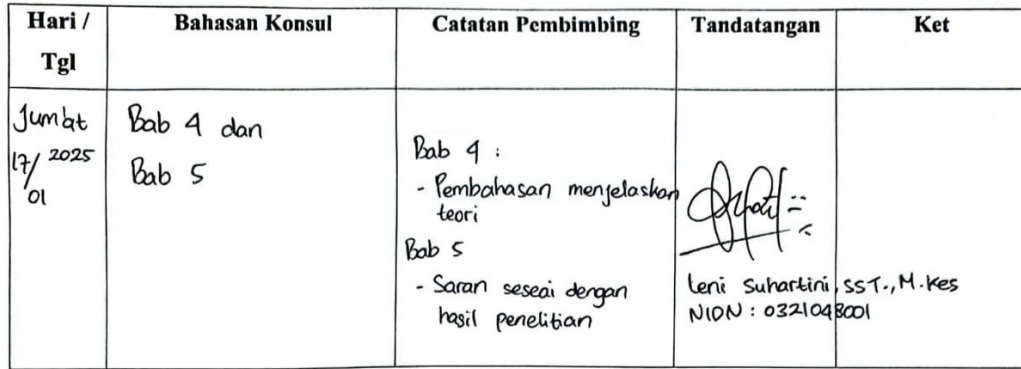 Hari / Tgl
Bahasan Konsul
Catatan Pembimbing
Tandatangan
Ket
Jumat
17/01 2025
Bab 4 dan
Bab 5
Bab 4 :
- Pembahasan menjelaskan
teori
Bab 5
- Saran seseai dengan
hasil penelitian
Leni Suhartini, SST., M.Kes
NIDN : 0321048001